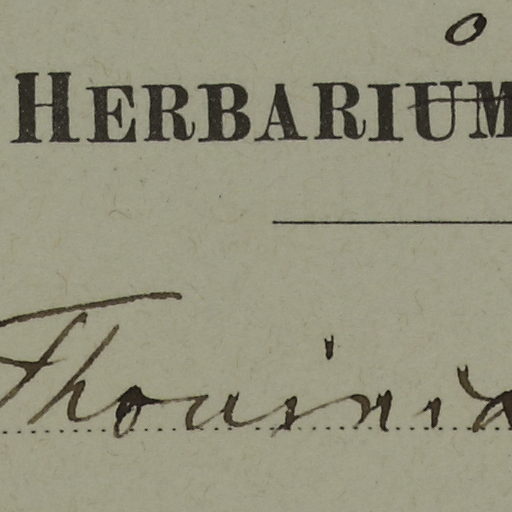 o
HERBARIUM
Thouinia